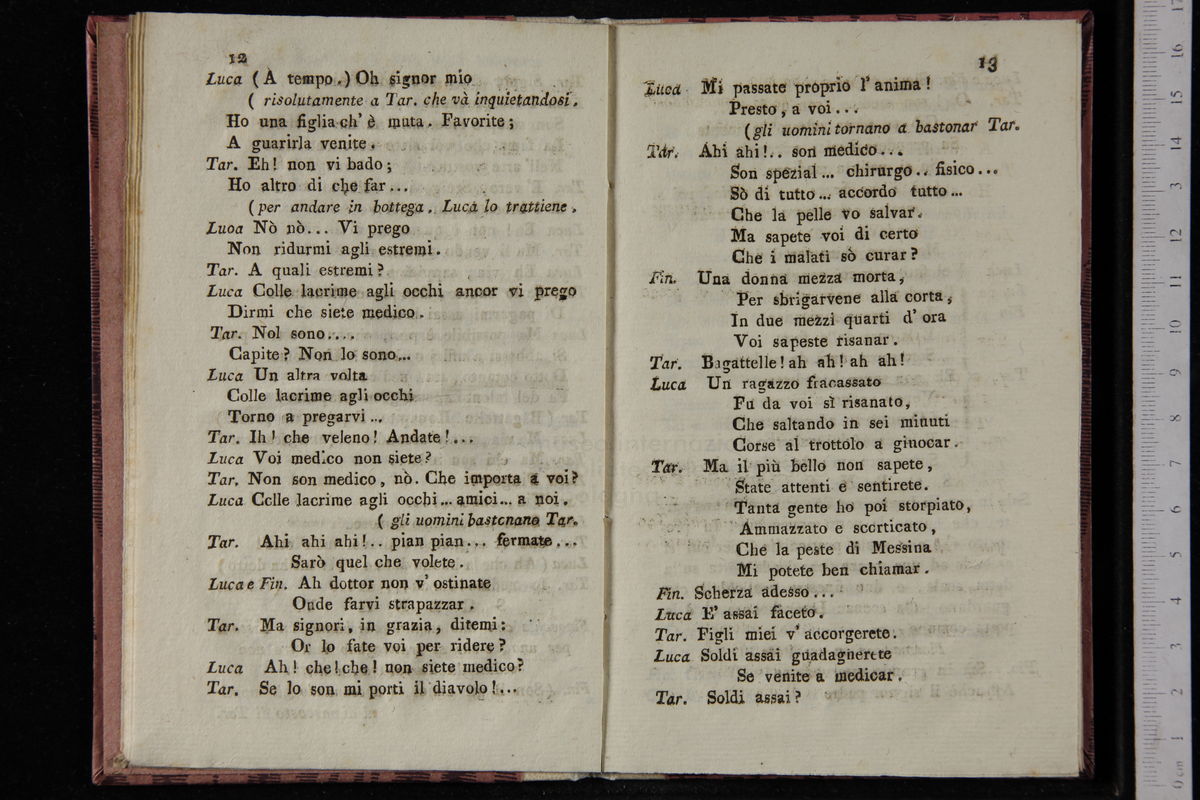 12
Luca (A tempo.) Oh signor mio
( risolutamente a Tar. che và inquietandosi.
Ho una figlia ch' è muta. Favorite;
A guarirla venite.
Tar. Eh! non vi bado;
Ho altro di che far...
(per andare in bottega. Luca lo trattiene.
Luoa Nò nò... Vi prego
Non ridurmi agli estremi.
Tar. A quali estremi?
Luca Colle lacrime agli occhi ancor vi prego
Dirmi che siete medico.
Tar. Nol sono....
Capite? Non lo sono...
Luca Un altra volta
Colle lacrime agli occhi
Torno a pregarvi...
Tar. Ih! che veleno! Andate!...
Luca Voi medico non siete?
Tar. Non son medico, nò. Che importa a voi?
Luca Colle lacrime agli occhi... amici... a noi.
( gli uomini bastonano Tar.
Tar. Ahi ahi ahi!.. pian pian... fermate...
Sarò quel che volete.
Luca e Fin. Ah dottor non v' ostinate
Onde farvi strapazzar.
Tar. Ma signori, in grazia, ditemi:
Or lo fate voi per ridere?
Luca Ah! che! che! non siete medico?
Tar. Se lo son mi porti il diavolo!...
13
Luca Mi passate proprio l' anima!
Presto, a voi...
(gli uomini tornano a bastonar Tar.
Tar. Ahi ahi!.. son medico...
Son spezial... chirurgo.. fisico...
Sò di tutto... accordo tutto...
Che la pelle vo salvar.
Ma sapete voi di certo
Che i malati sò curar?
Fin. Una donna mezza morta,
Per sbrigarvene alla corta,
In due mezzi quarti d' ora
Voi sapeste risanar.
Tar. Bagattelle! ah ah! ah ah!
Luca Un ragazzo fracassato
Fu da voi sì risanato,
Che saltando in sei minuti
Corse al trottolo a giuocar.
Tar. Ma il più bello non sapete,
State attenti e sentirete.
Tanta gente ho poi storpiato,
Ammazzato e scorticato,
Che la peste di Messina
Mi potete ben chiamar.
Fin. Scherza adesso...
Luca E' assai faceto.
Tar. Figli miei v' accorgerete.
Luca Soldi assai guadagnerete
Se venite a medicar.
Tar. Soldi assai?